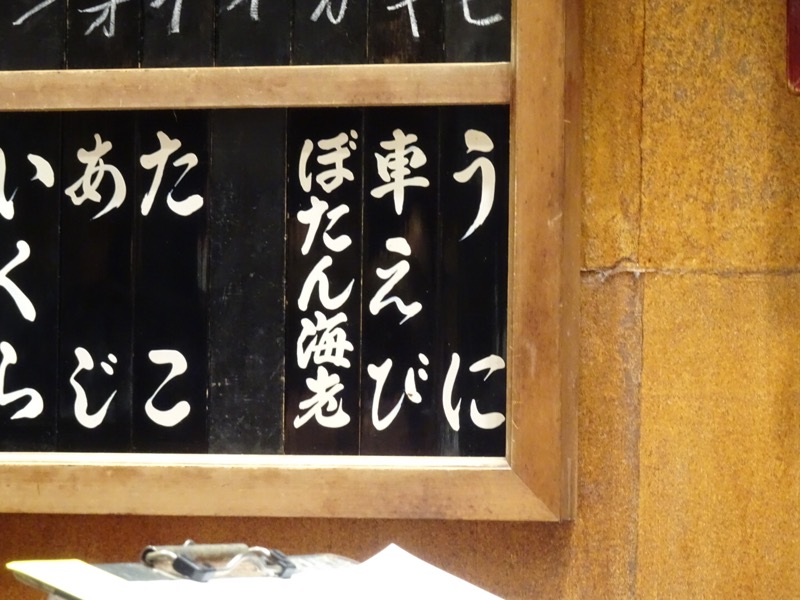 うに
車えび
ぼたん海老
たこ
あじ
いくら